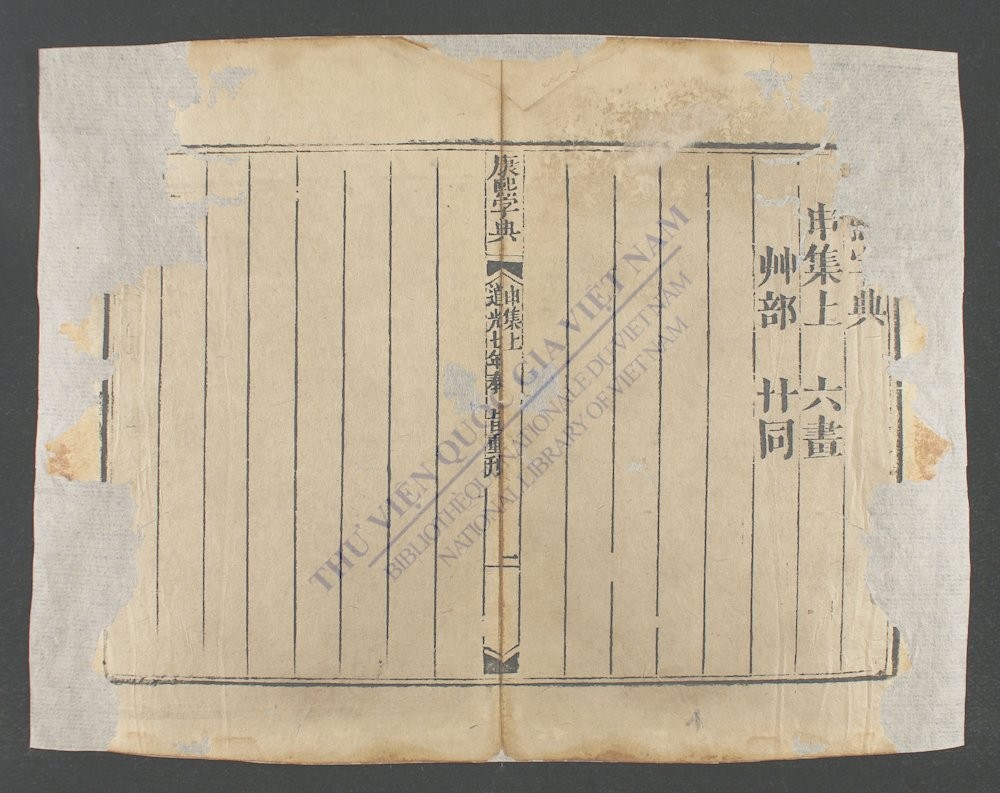 字典
申集上 六畫
艸部 廾同
康熙字典
申集上
道光七年奉 旨重刊
THƯ VIỆN QUỐC GIA VIỆT NAM
BIBLIOTHÈQUE NATIONALE DU VIETNAM
NATIONAL LIBRARY OF VIETNAM